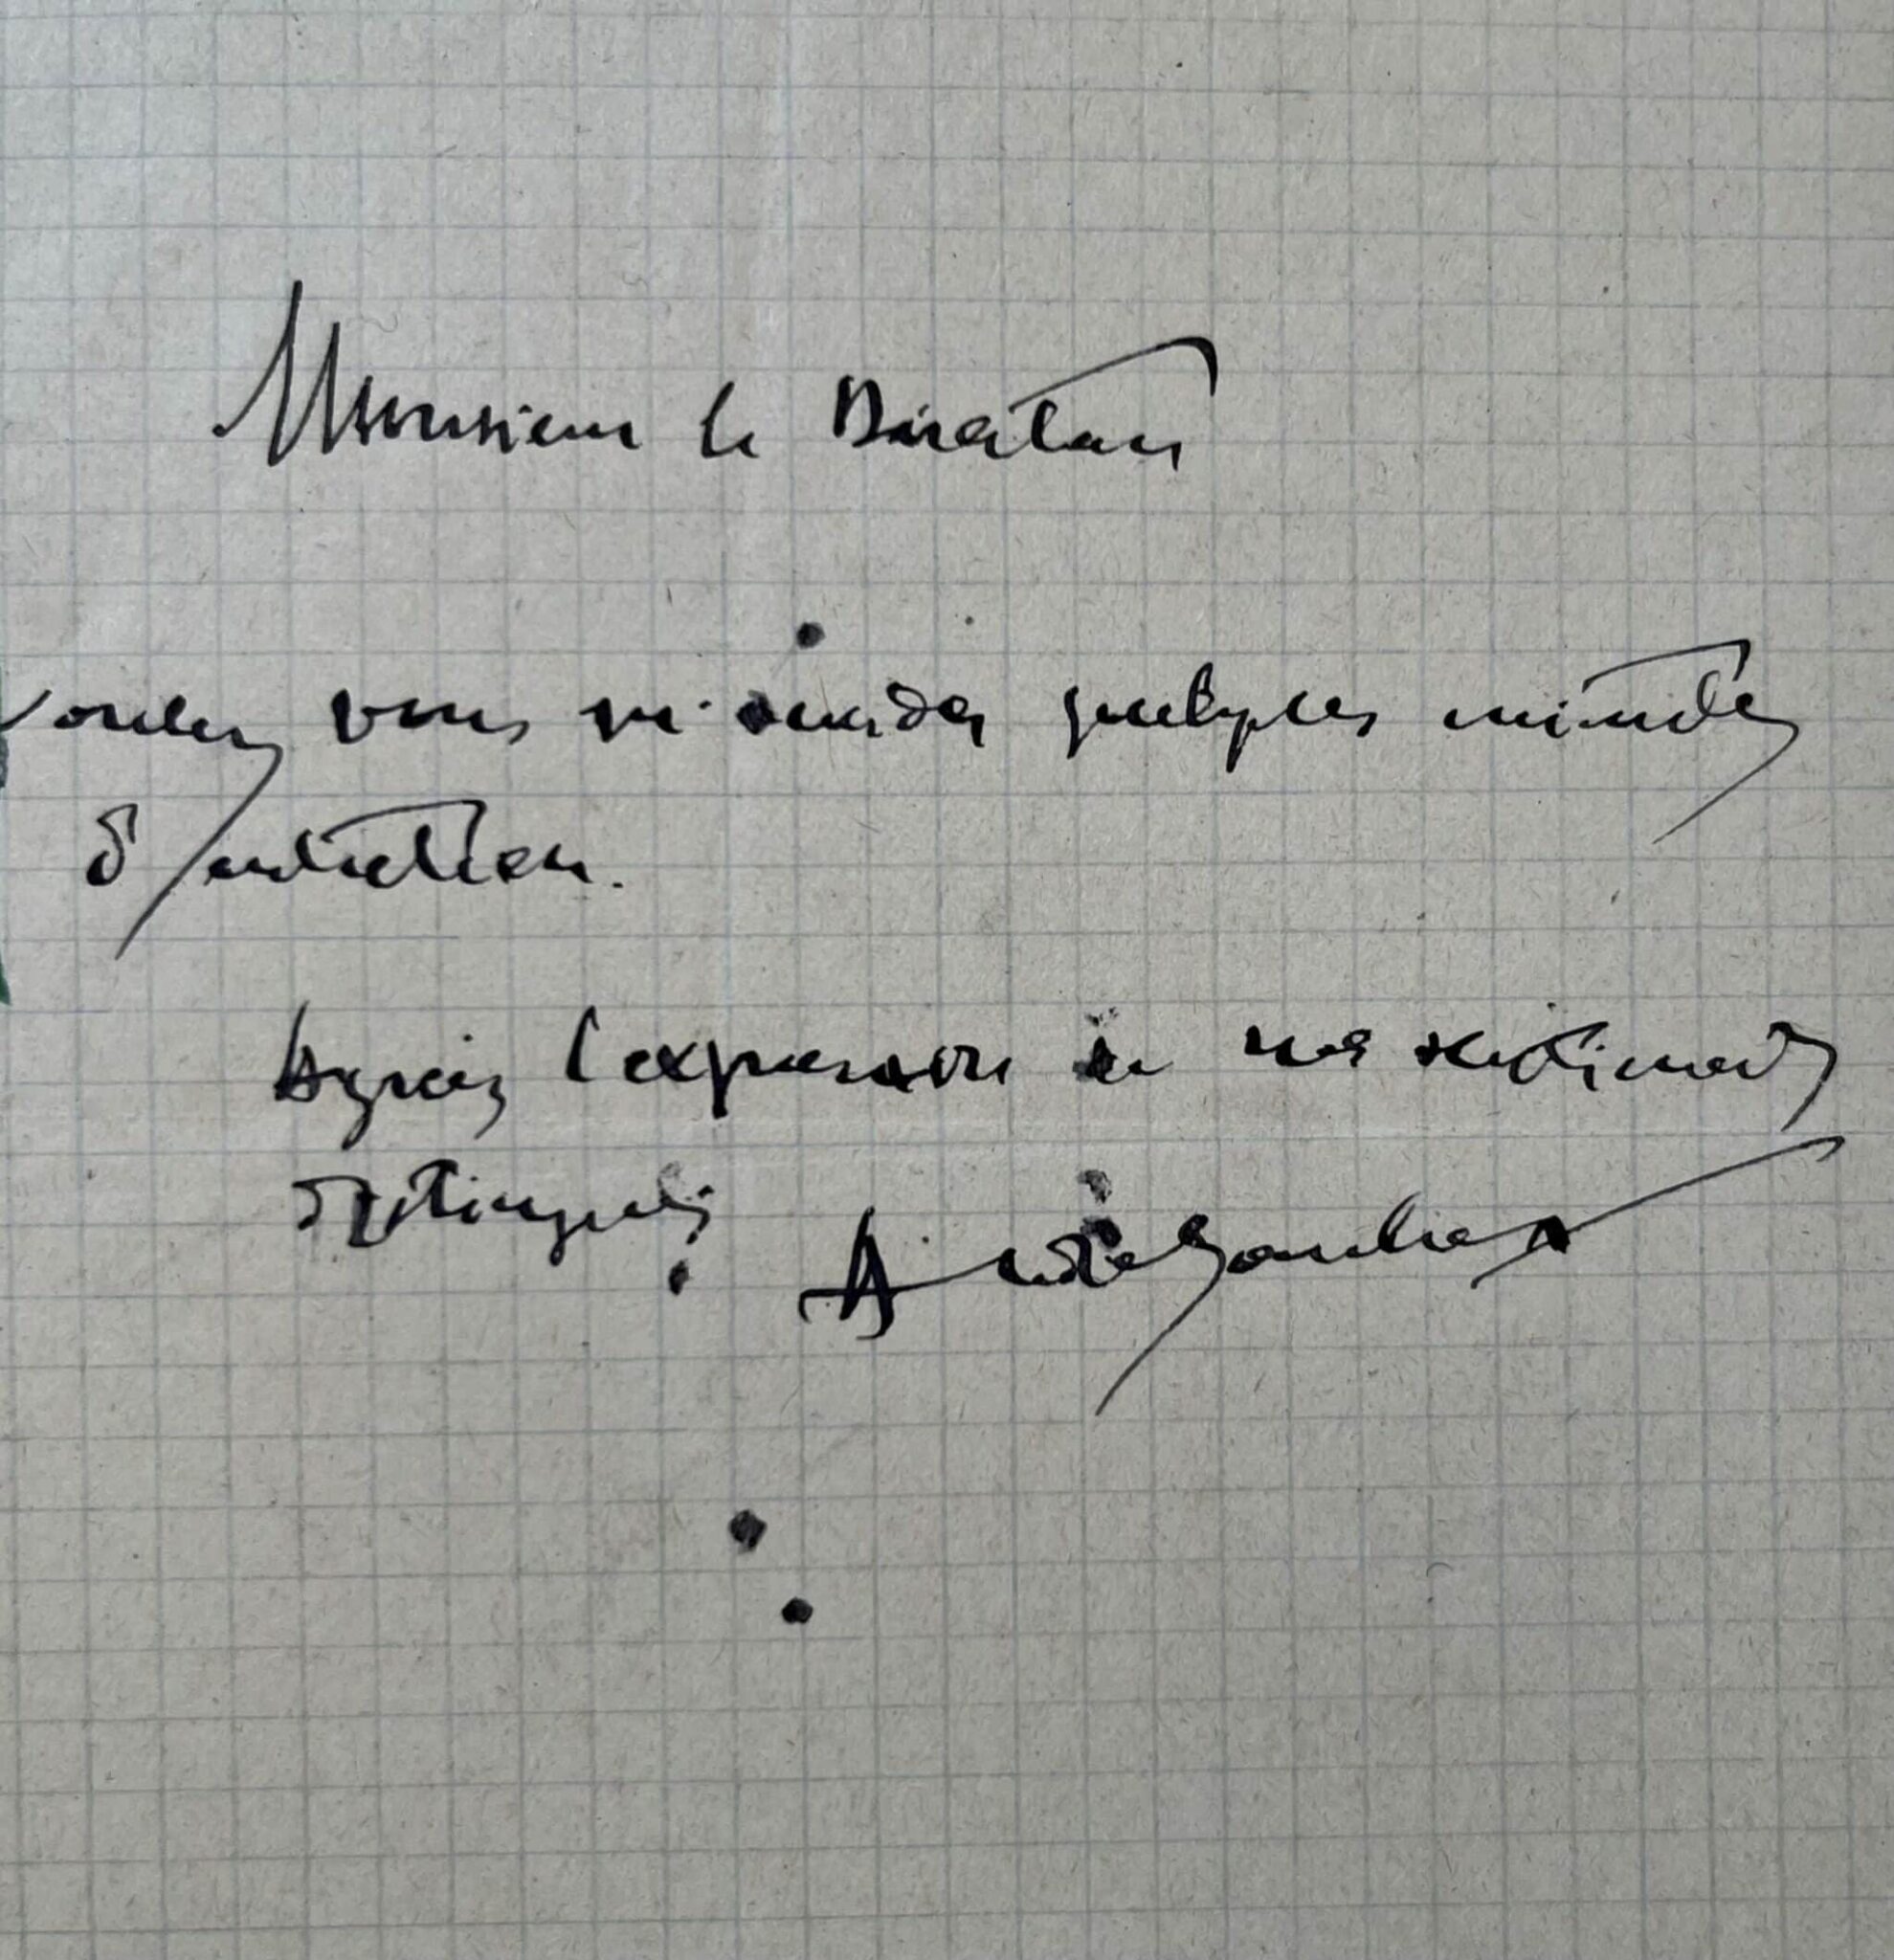 Monsieur le Directeur
Voulez vous m'accorder quelques minutes
d'entretien.
Agréez l'expression de mes sentiments
distingués